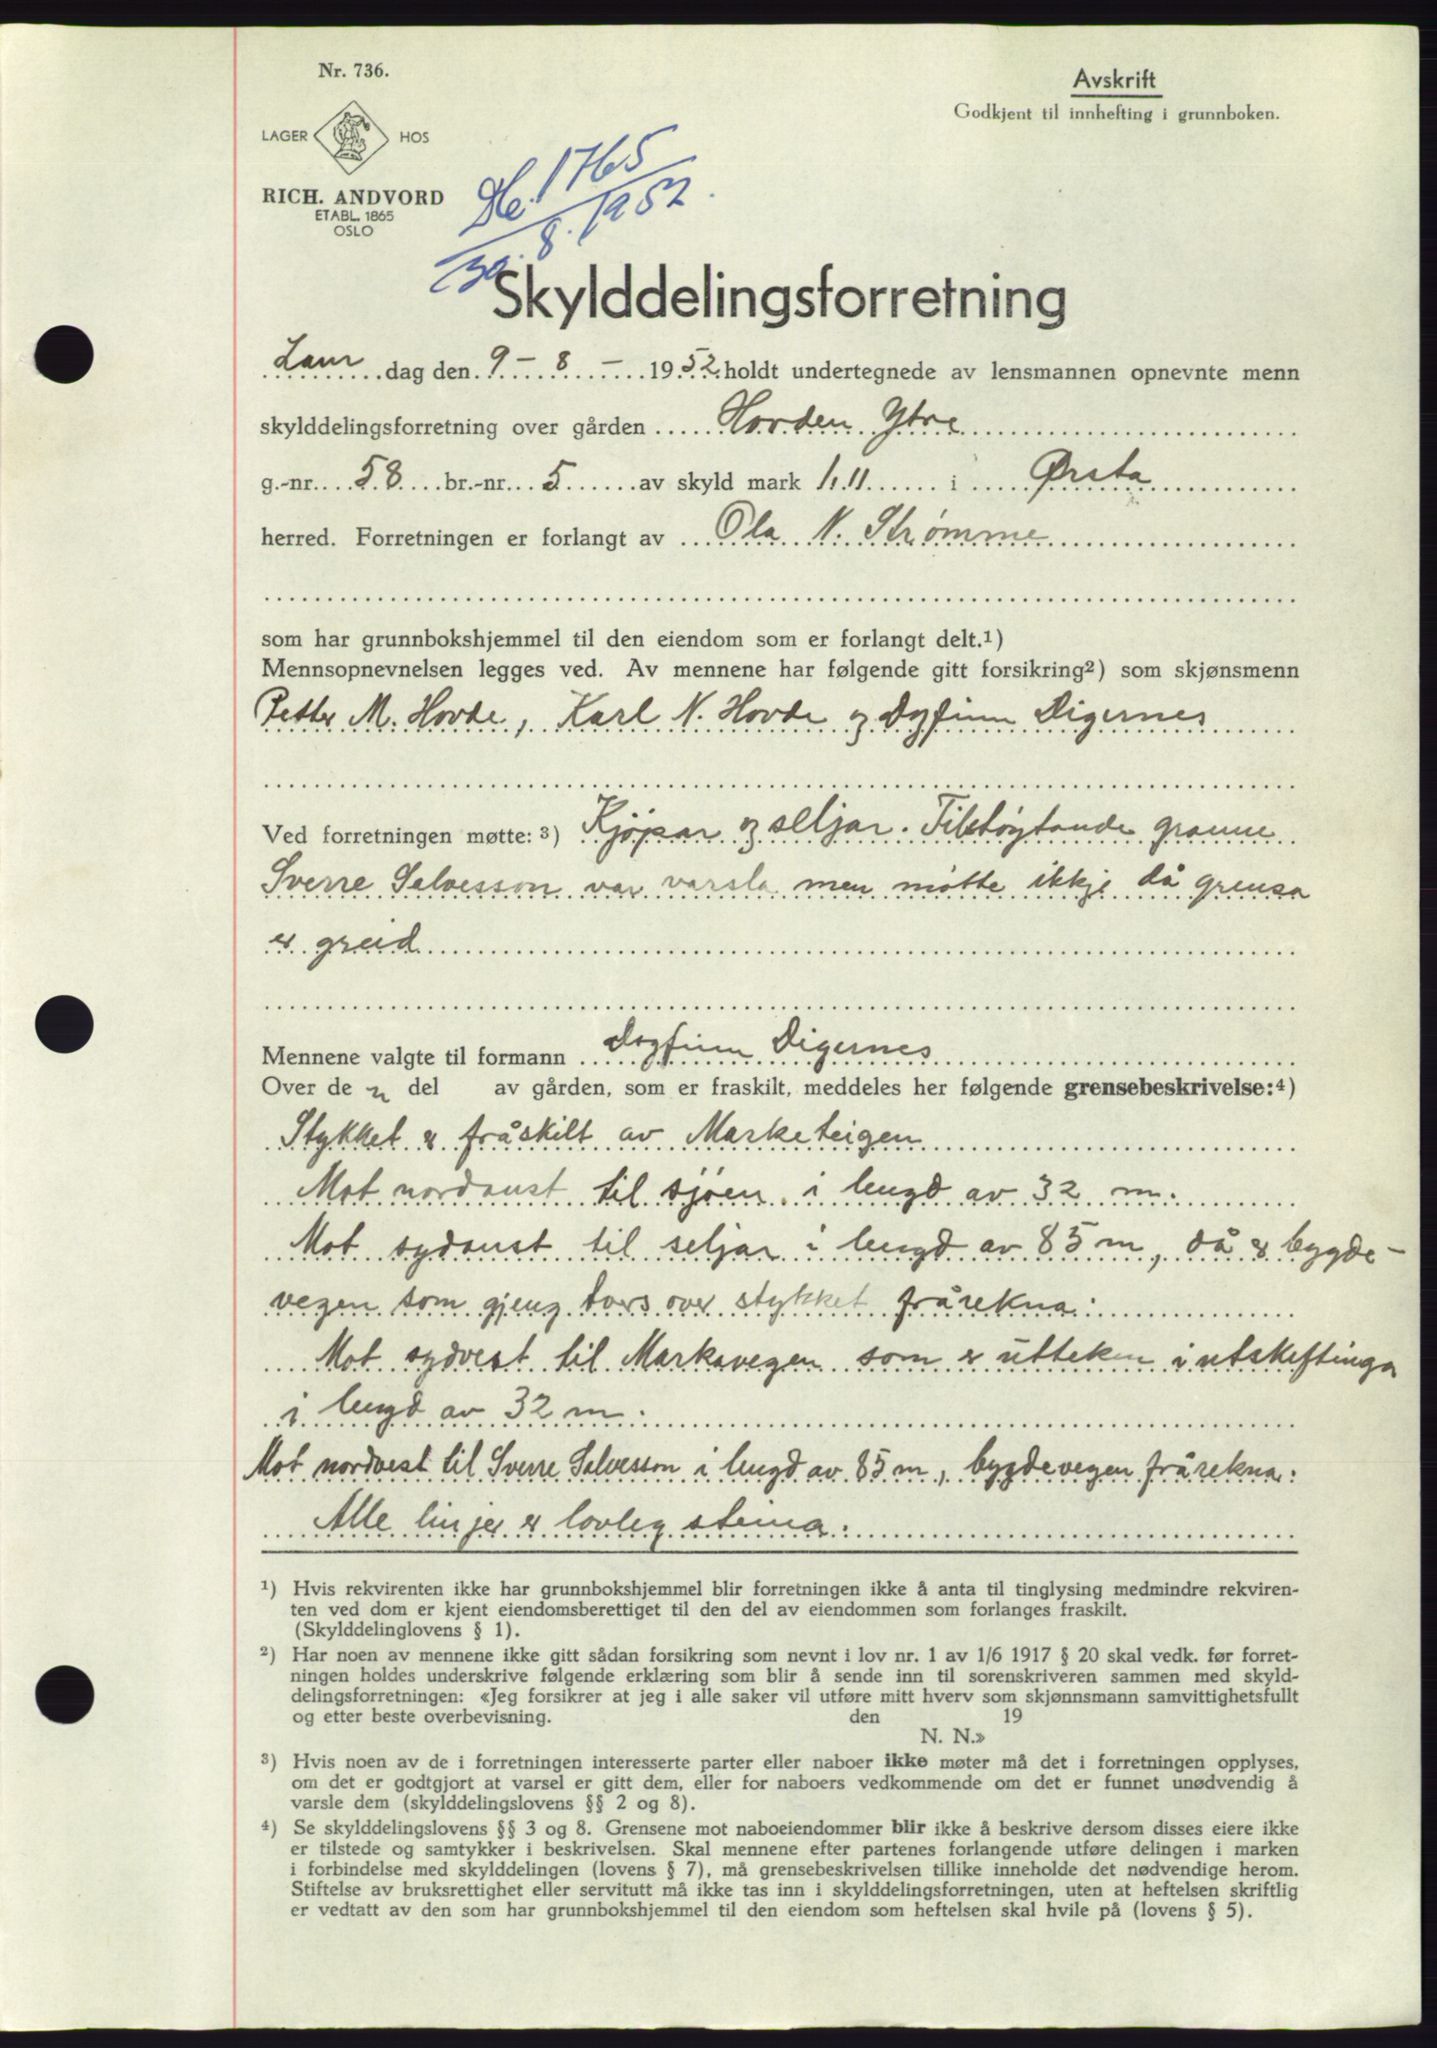 Nr. 736.
Avskrift
Godkjent til innhefting i grunnboken.
LAGER HOS
RICH. ANDVORD
ETABL. 1865
OSLO
1765
30. 8. 1952.
Skylddelingsforretning
Laur dag den 9 - 8 - 1952 holdt undertegnede av lensmannen opnevnte menn
skylddelingsforretning over gården Hovden Ytre
g.-nr. 58 br.-nr. 5 av skyld mark 1.11 i Ørsta
herred. Forretningen er forlangt av Ola N. Strømme
som har grunnbokshjemmel til den eiendom som er forlangt delt.¹)
Mennsopnevnelsen legges ved. Av mennene har følgende gitt forsikring²) som skjønsmenn
Petter M. Hovde, Karl N. Hovde og Dagfinn Digernes
Ved forretningen møtte: ³) Kjøpar og seljar. Tilstøytande granne
Sverre Selvesson var varsla men møtte ikkje då grensa
er greid
Mennene valgte til formann Dagfinn Digernes
Over de n del av gården, som er fraskilt, meddeles her følgende grensebeskrivelse:⁴)
Stykket er fråskilt av Marketeigen
Mot nordaust til sjøen i lengd av 32 m.
Mot sydaust til seljar i lengd av 85 m, då er bygde-
vegen som gjeng tvers over stykket frårekna.
Mot sydvest til Markavegen som er utteken i utskiftinga
i lengd av 32 m.
Mot nordvest til Sverre Selvesson i lengd av 85 m, bygdevegen frårekna.
Alle linjer er lovleg steina.
¹) Hvis rekvirenten ikke har grunnbokshjemmel blir forretningen ikke å anta til tinglysing medmindre rekviren-
ten ved dom er kjent eiendomsberettiget til den del av eiendommen som forlanges fraskilt.
(Skylddelinglovens § 1).
²) Har noen av mennene ikke gitt sådan forsikring som nevnt i lov nr. 1 av 1/6 1917 § 20 skal vedk. før forret-
ningen holdes underskrive følgende erklæring som blir å sende inn til sorenskriveren sammen med skyld-
delingsforretningen: «Jeg forsikrer at jeg i alle saker vil utføre mitt hverv som skjønnsmann samvittighetsfullt
og etter beste overbevisning. den 19
N. N.»
³) Hvis noen av de i forretningen interesserte parter eller naboer ikke møter må det i forretningen opplyses,
om det er godtgjort at varsel er gitt dem, eller for naboers vedkommende om det er funnet unødvendig å
varsle dem (skylddelingslovens §§ 2 og 8).
⁴) Se skylddelingslovens §§ 3 og 8. Grensene mot naboeiendommer blir ikke å beskrive dersom disses eiere ikke
er tilstede og samtykker i beskrivelsen. Skal mennene efter partenes forlangende utføre delingen i marken
i forbindelse med skylddelingen (lovens § 7), må grensebeskrivelsen tillike inneholde det nødvendige herom.
Stiftelse av bruksrettighet eller servitutt må ikke tas inn i skylddelingsforretningen, uten at heftelsen skriftlig
er vedtatt av den som har grunnbokshjemmel til den eiendom som heftelsen skal hvile på (lovens § 5).